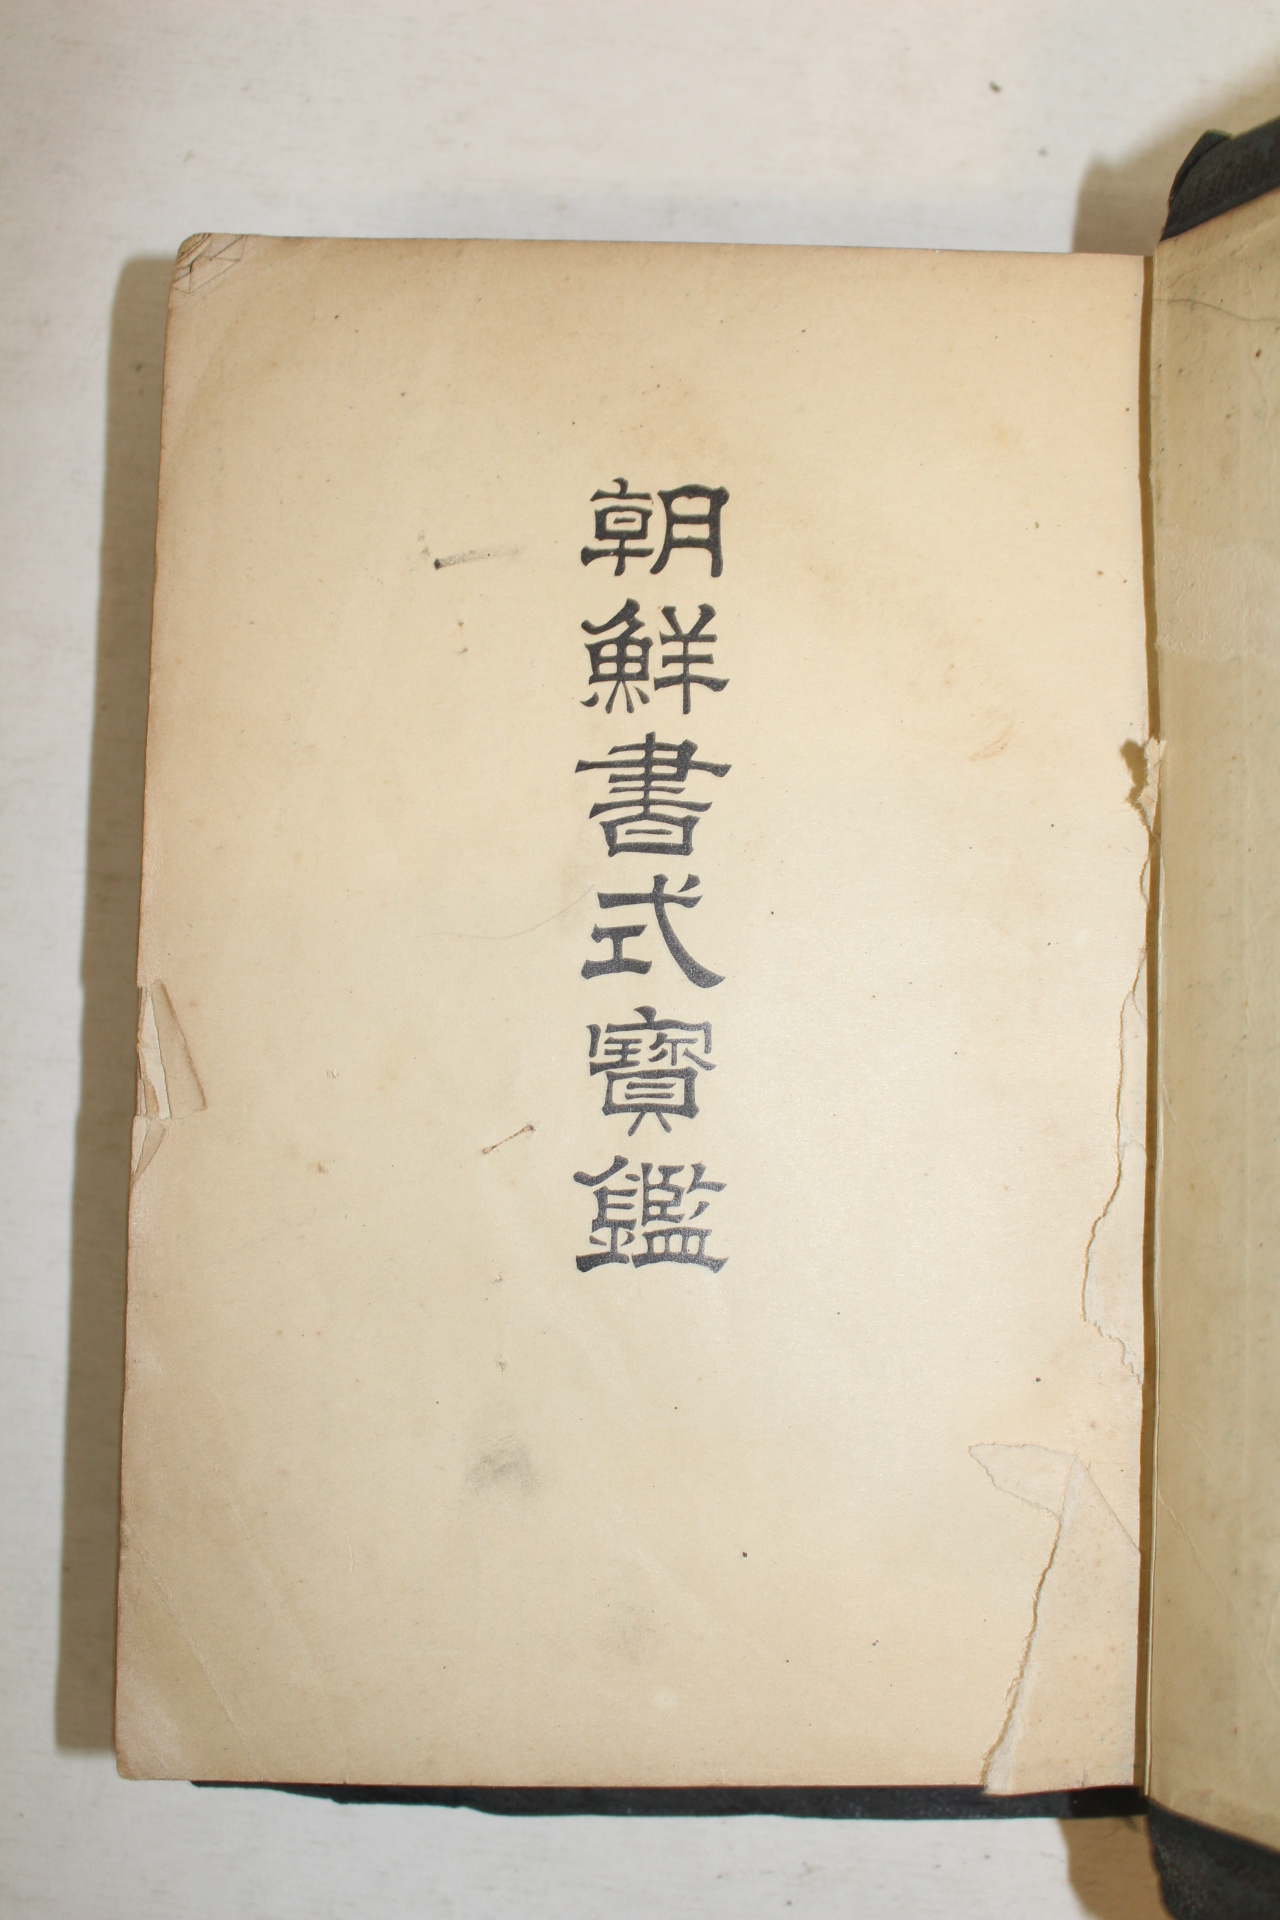 朝鮮書式寶鑑